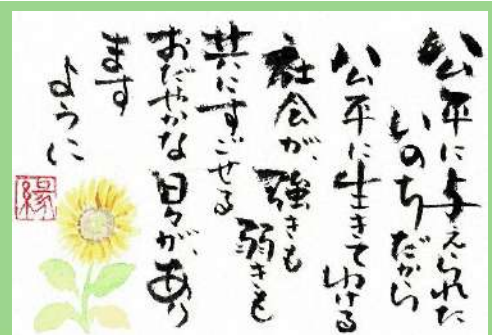 公平に与えられた
いのちだから
公平に生きてゆける
社会が、強きも
弱きも
共にすごせる
おだやかな日々が、あり
ます
ように
縁